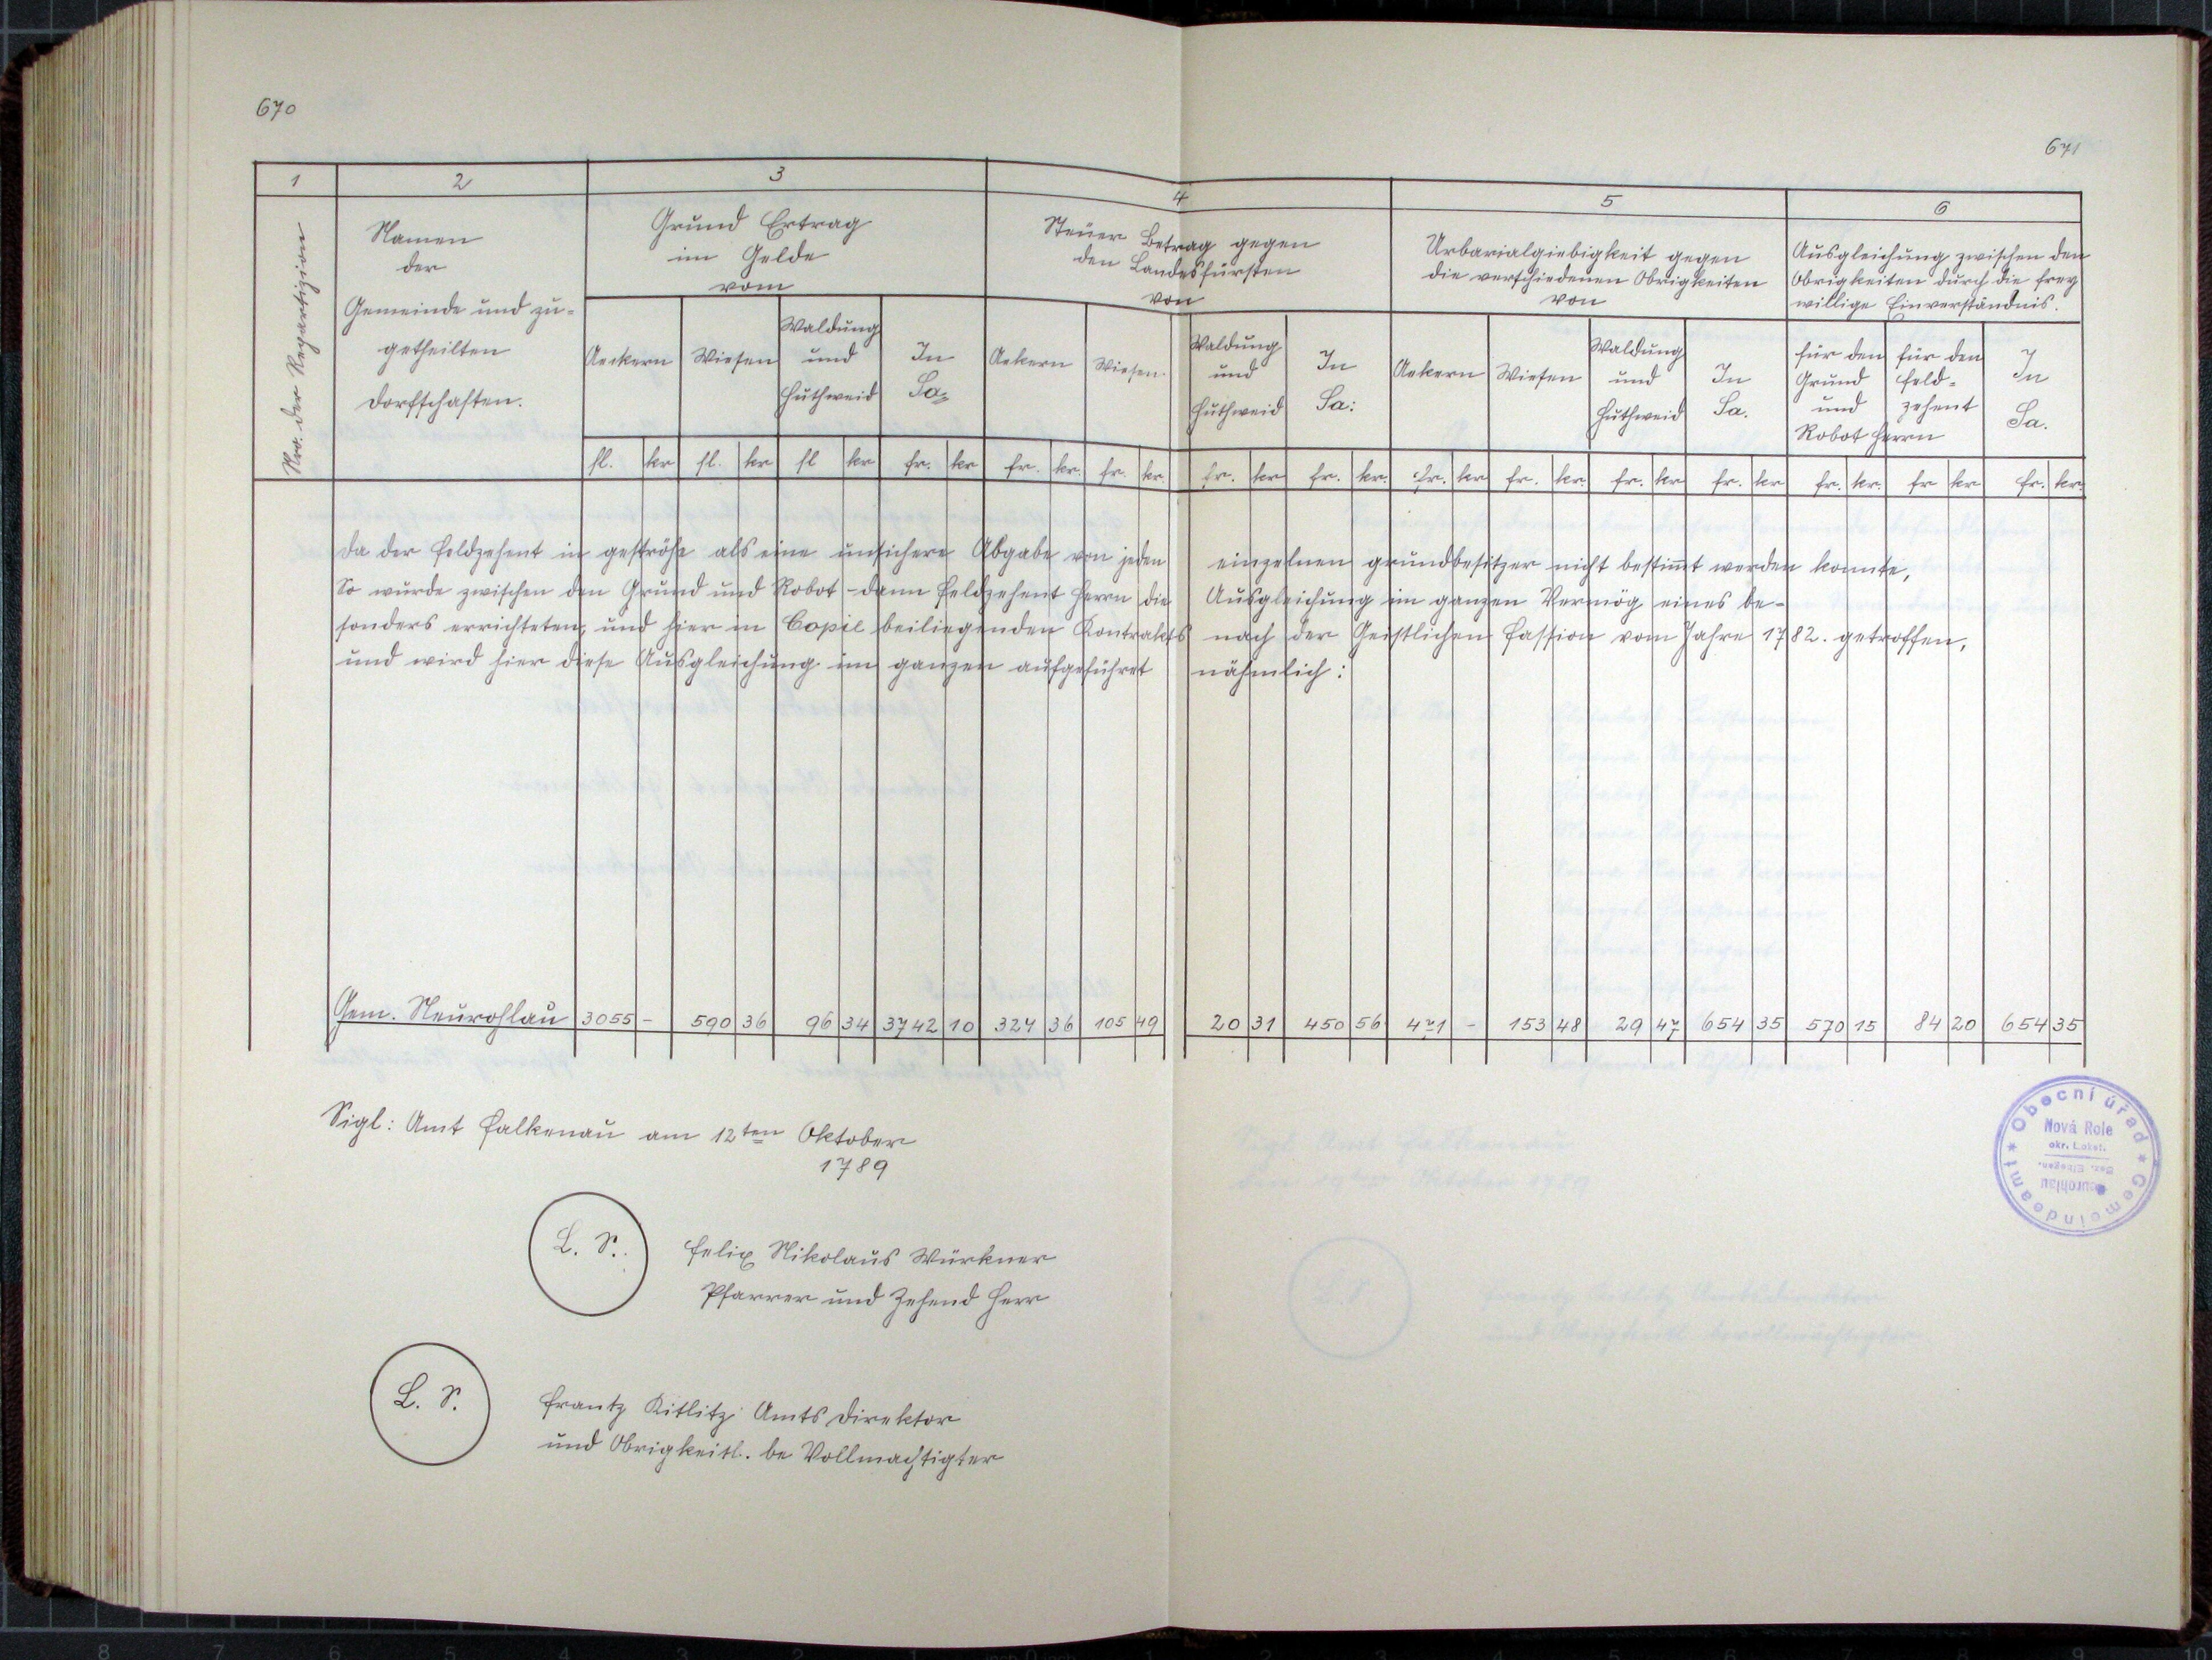 670
671
1 2 3 4 5 6
Nro. der Repartizion
Namen
der
Gemeinde und zu=
getheilten
Dorfschaften.
Grund Ertrag
im Gelde
vom
Steuer Betrag gegen
den Landesfürsten
von
Urbarialgiebigkeit gegen
die verschiedenen Obrigkeiten
von
Ausgleichung zwischen den
Obrigkeiten durch die frey
willige Einverständnis.
Aeckern
Wiesen
Waldung
und
Huthweid
In
Sa=
Aekern
Wiesen.
Waldung
und
Huthweid
In
Sa:
Aekern
Wiesen
Waldung
und
Huthweid
In
Sa.
für den
Grund
und
Robot Herrn
für den
Feld=
zehent
In
Sa.
fl. kr fl. kr fl kr fr. kr fr. kr. fr. kr. fr. kr fr. kr. fr. kr fr. kr. fr. kr fr. kr fr. kr. fr kr fr. kr.
Da der Feldzehent in geströhe als eine unsichere Abgabe von jeden einzelnen grundbesitzer nicht bestimt werden konnte,
So wurde zwischen den Grund und Robot - dann Feldzehent Herrn die Ausgleichung im ganzen Vermög eines be-
sonders errichteten, und hier in Copie beiliegenden Kontrakts nach der Geistlichen Fassion vom Jahre 1782. getroffen,
und wird hier diese Ausgleichung im ganzen aufgeführet nähmlich:
Gem. Neurohlau 3055 - 590 36 96 34 3742 10 324 36 105 49 20 31 450 56 471 - 153 48 29 47 654 35 570 15 84 20 654 35
Sigl: Amt Falkenau am 12ten Oktober
1789
L. S.
Felix Nikolaus Würkner
Pfarrer und Zehend Herr
L. S.
Frantz Kitlitz Amts Direktor
und Obrigkeitl. be Vollmachtigter
Obecní úřad
Nová Role
okr. Loket.
Bez. Elbogen.
Neurohlau
Gemeindeamt